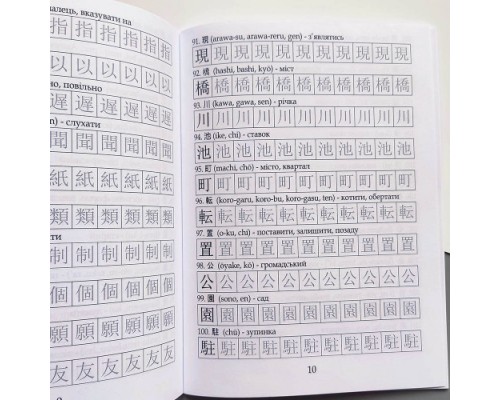 алець, вказувати на
指 指 指 指 指
以 以 以 以
но, повільно
遅 遅 遅 遅 遅
n) - слухати
聞 聞 聞 聞 聞
紙 紙 紙 紙 紙
類 類 類 類 類
ти
制 制 制 制 制
個 個 個 個 個
願 願 願 願 願
友 友 友 友 友
91. 現 (arawa-su, arawa-reru, gen) - з'являтись
現 現 現 現 現 現 現 現 現
92. 橋 (hashi, bashi, kyō) - міст
橋 橋 橋 橋 橋 橋 橋 橋 橋
93. 川 (kawa, gawa, sen) - річка
川 川 川 川 川 川 川 川 川
94. 池 (ike, chi) - ставок
池 池 池 池 池 池 池 池 池
95. 町 (machi, chō) - місто, квартал
町 町 町 町 町 町 町 町 町
96. 転 (koro-garu, koro-bu, koro-gasu, ten) - котити, обертати
転 転 転 転 転 転 転 転 転
97. 置 (o-ku, chi) - поставити, залишити, позаду
置 置 置 置 置 置 置 置 置
98. 公 (ōyake, kō) - громадський
公 公 公 公 公 公 公 公 公
99. 園 (sono, en) - сад
園 園 園 園 園 園 園 園 園
100. 駐 (chū) - зупинка
駐 駐 駐 駐 駐 駐 駐 駐 駐
10